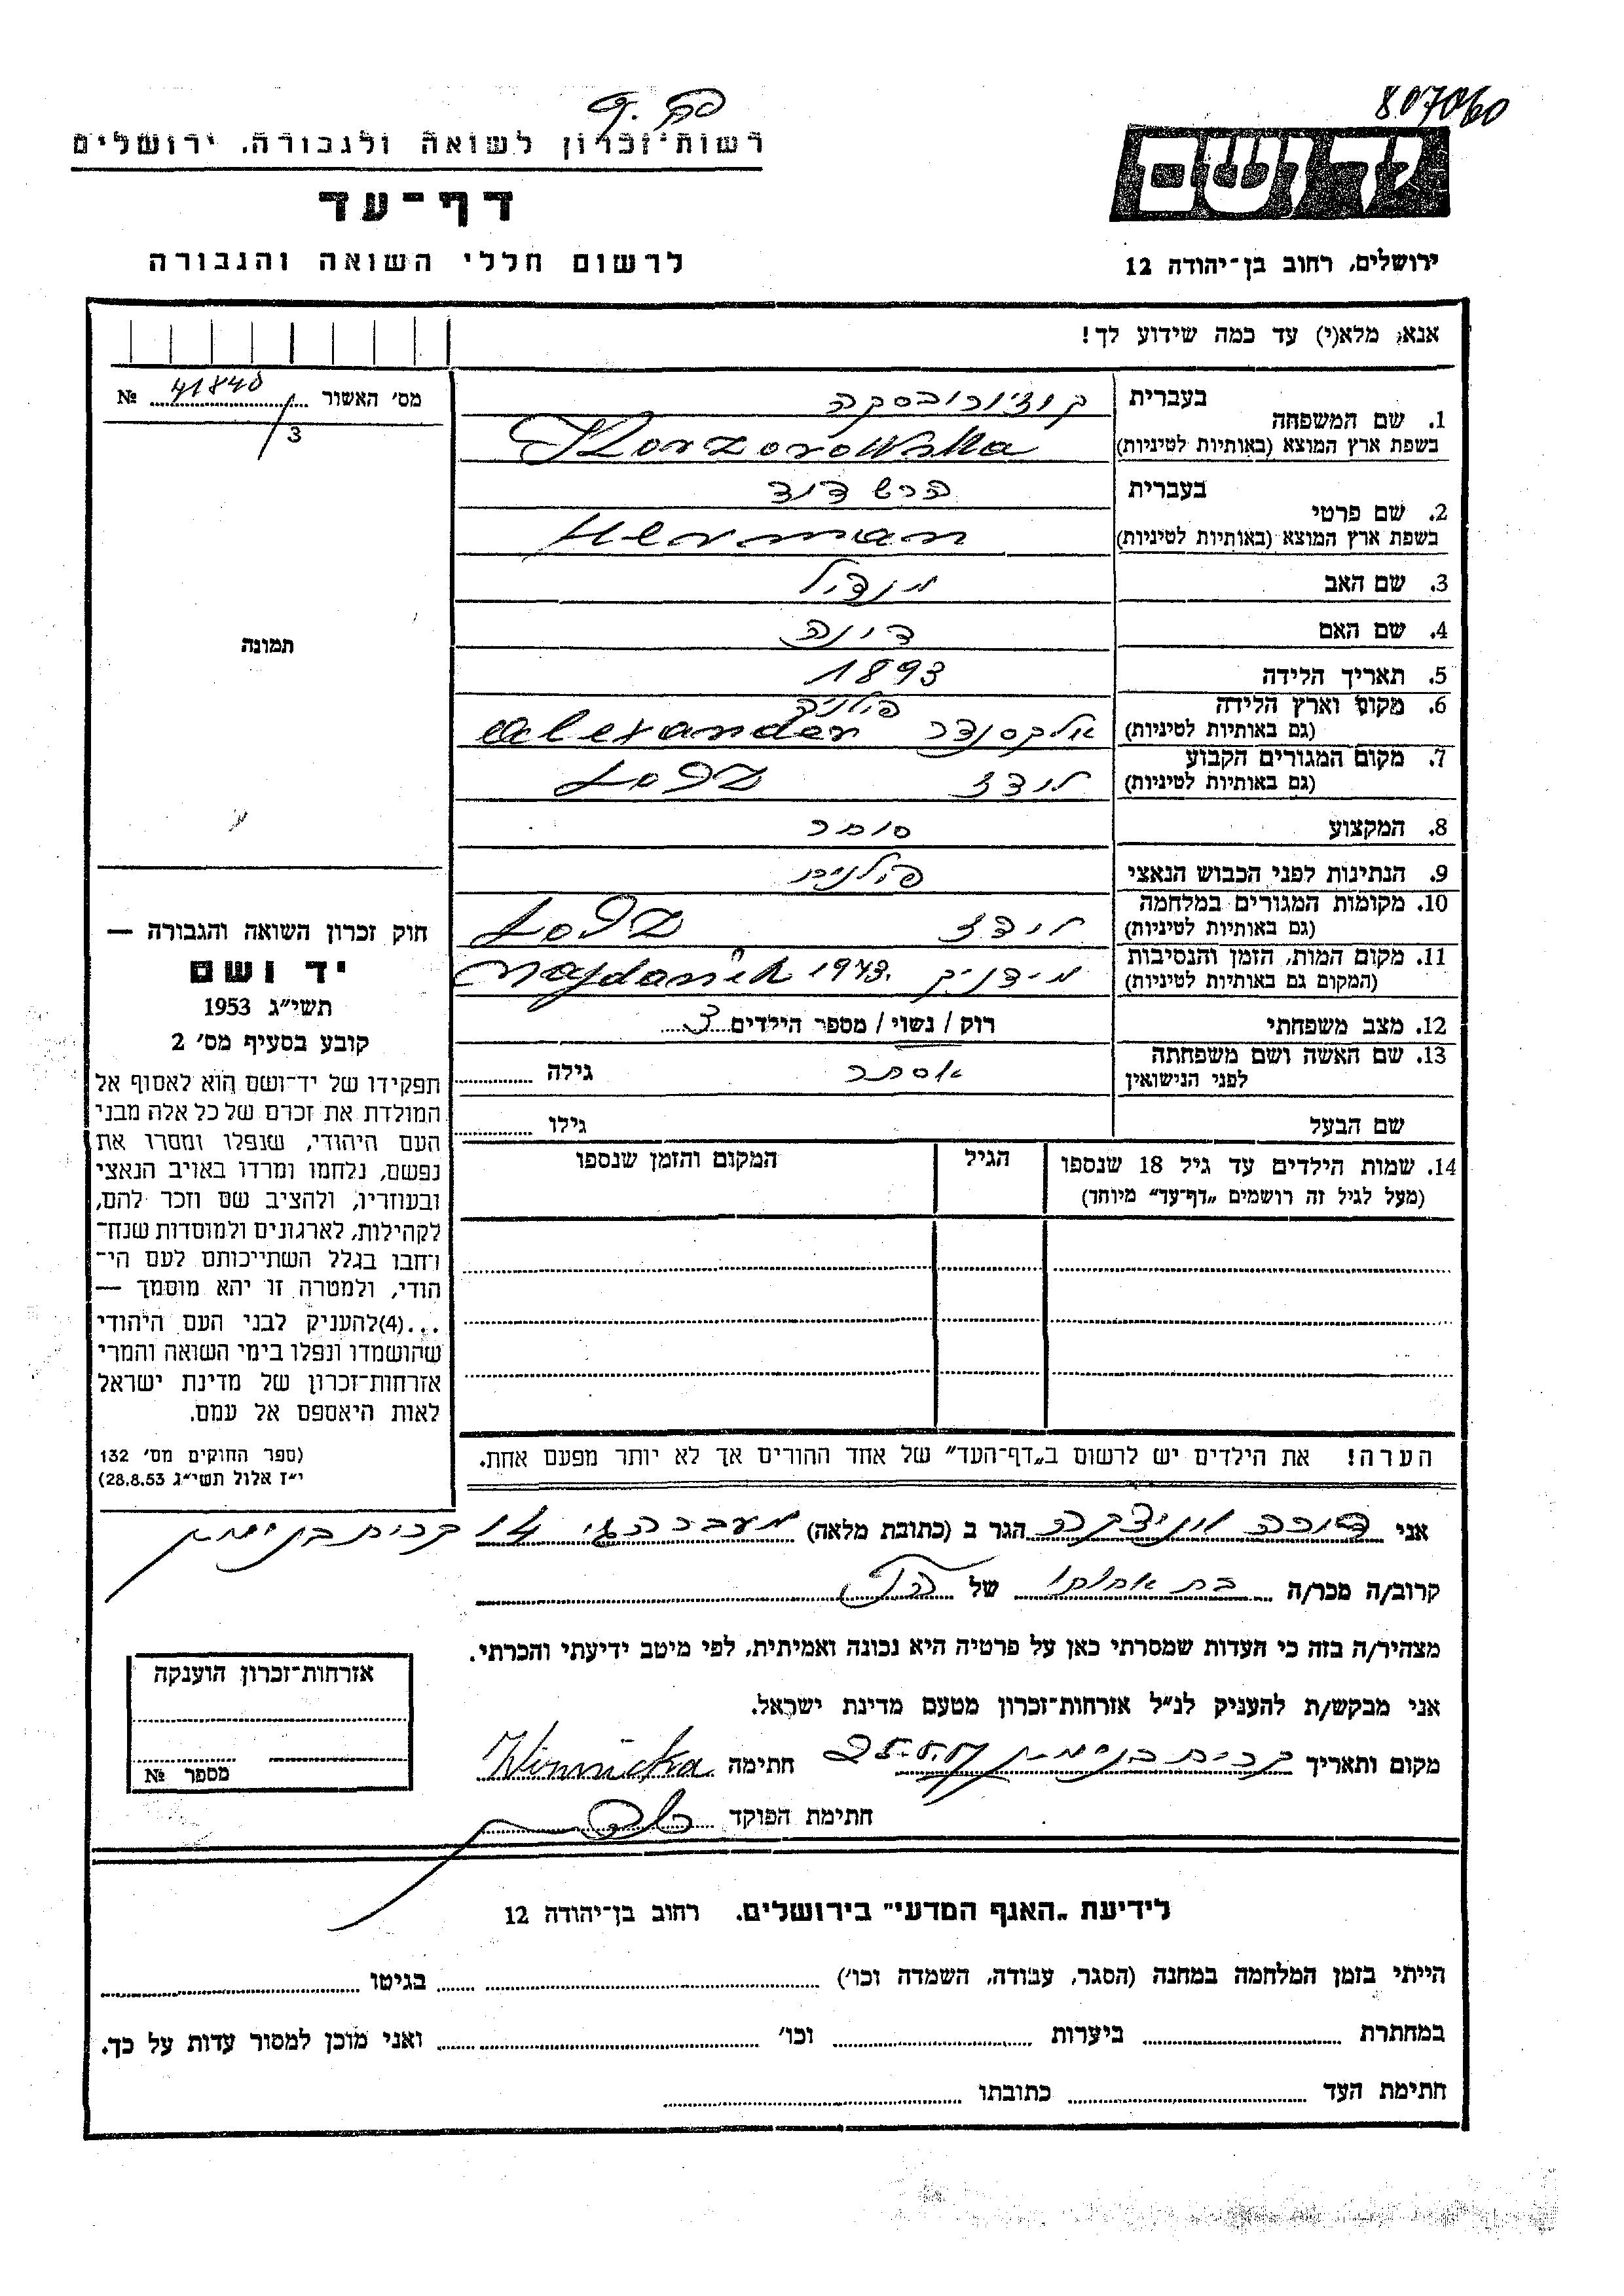 807060
רשות־זכרון לשואה ולגבורה, ירושלים
דף־עד
לרשום חללי השואה והגבורה
יד ושם
ירושלים, רחוב בן־יהודה 12
אנא, מלא(י) עד כמה שידוע לך!
מס' האשור 41840 №
3
1. שם המשפחה בעברית
בשפת ארץ המוצא (באותיות לטיניות) Korzorowska
2. שם פרטי בעברית הרש דוד
בשפת ארץ המוצא (באותיות לטיניות) Herman
3. שם האב מנדיל
4. שם האם דינה
5. תאריך הלידה 1893
6. מקום וארץ הלידה פולניה
(גם באותיות לטיניות) אלכסנדר alexander
7. מקום המגורים הקבוע
(גם באותיות לטיניות) לודז
8. המקצוע סוחר
9. הנתינות לפני הכבוש הנאצי פולנית
10. מקומות המגורים במלחמה
(גם באותיות לטיניות) לודז
11. מקום המות, הזמן והנסיבות
(המקום גם באותיות לטיניות) מידניק Majdanik 1943.
12. מצב משפחתי רוק / נשוי / מספר הילדים 3
13. שם האשה ושם משפחתה
לפני הנישואין אסתר גילה
שם הבעל גילו
14. שמות הילדים עד גיל 18 שנספו הגיל המקום והזמן שנספו
(מעל לגיל זה רושמים „דף־עד" מיוחד)
הערה! את הילדים יש לרשום ב„דף־העד" של אחד ההורים אך לא יותר מפעם אחת.
תמונה
חוק זכרון השואה והגבורה —
יד ושם
תשי"ג 1953
קובע בסעיף מס' 2
תפקידו של יד־ושם הוא לאסוף אל
המולדת את זכרם של כל אלה מבני
העם היהודי, שנפלו ומסרו את
נפשם, נלחמו ומרדו באויב הנאצי
ובעוזריו, ולהציב שם וזכר להם,
לקהילות, לארגונים ולמוסדות שנח־
רחבו בגלל השתייכותם לעם הי־
הודי, ולמטרה זו יהא מוסמך —
...(4)להעניק לבני העם היהודי
שהושמדו ונפלו בימי השואה והמרי
אזרחות־זכרון של מדינת ישראל
לאות היאספם אל עמם.
(ספר החוקים מס' 132
י"ז אלול תשי"ג 28.8.53)
אני דורה ויניצקה הגר ב (כתובת מלאה) מעברה גי 14 קרית בנימין
קרוב/ה מכר/ה בת אחותו של הנ"ל
מצהיר/ה בזה כי העדות שמסרתי כאן על פרטיה היא נכונה ואמיתית, לפי מיטב ידיעתי והכרתי.
אני מבקש/ת להעניק לנ"ל אזרחות־זכרון מטעם מדינת ישראל.
מקום ותאריך קרית בנימין חתימה Winnicka
חתימת הפוקד
אזרחות־זכרון הוענקה
מספר №
לידיעת „האגף המדעי" בירושלים, רחוב בן־יהודה 12
הייתי בזמן המלחמה במחנה (הסגר, עבודה, השמדה וכו') בגיטו
במחתרת ביערות וכו' ואני מוכן למסור עדות על כך.
חתימת העד כתובתו